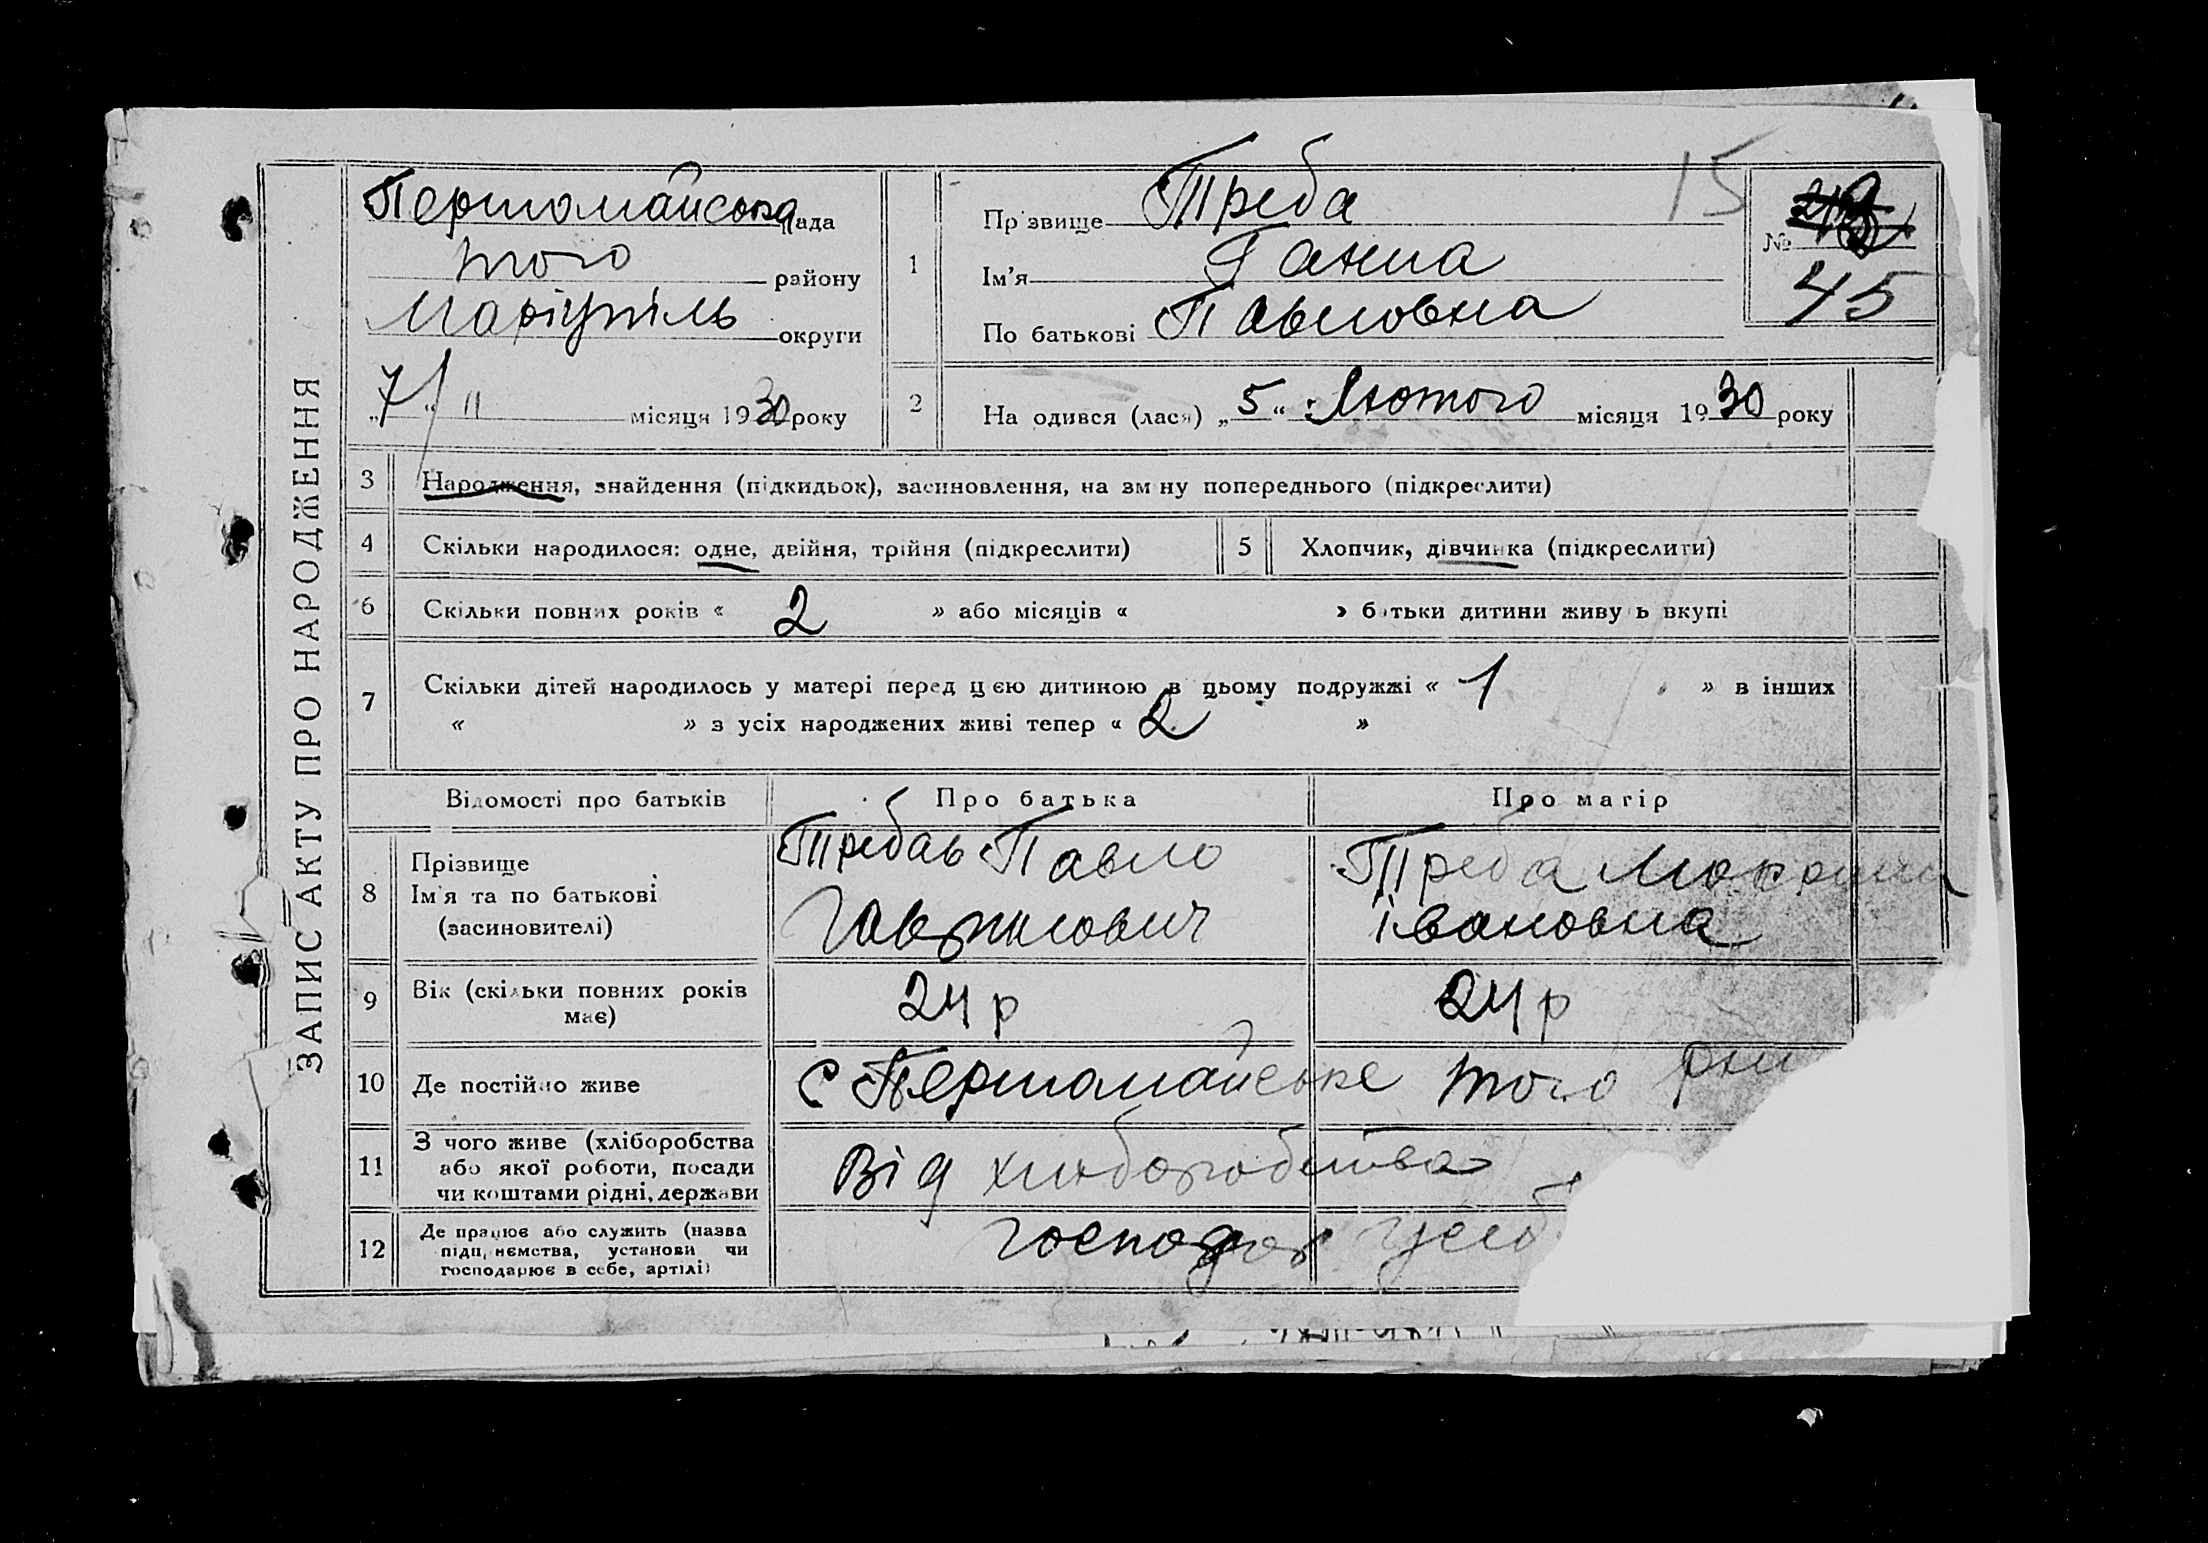 ЗАПИС АКТУ ПРО НАРОДЖЕННЯ
Першомайська рада
того району
Маріупіль округи
„7“ II місяця 1930 року
1
Прізвище Треба
Ім'я Ганна
По батькові Павловна
15
№
45
2
На одився (лася) „5“ Лютого місяця 1930 року
3 Народження, знайдення (підкидьок), засиновлення, на зміну попереднього (підкреслити)
4 Скільки народилося: одне, двійня, трійня (підкреслити)
5 Хлопчик, дівчинка (підкреслити)
6 Скільки повних років « 2 » або місяців « » батьки дитини живуть вкупі
7 Скільки дітей народилось у матері перед цією дитиною в цьому подружжі « 1 » в інших
« » з усіх народжених живі тепер « 2 »
Відомості про батьків Про батька Про матір
8 Прізвище
Ім'я та по батькові
(засиновителі)
Требаь Павло
Гаврилович
Треба
івановна
9 Вік (скільки повних років
має)
24 р
24 р
10 Де постійно живе с Першомайське того рну
11 З чого живе (хліборобства
або якої роботи, посади
чи коштами рідні, держави
Від хліборобства
12 Де працює або служить (назва
підприємства, установи чи
господарює в себе, артілі)
господар